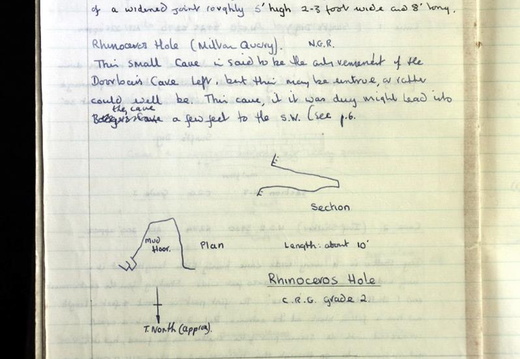 of a widened joint roughly 5' high 2-3 foot wide and 8' long.
Rhinoceros Hole (Milton Quarry). N.G.R.
This small Cave is said to be the only remnant of the
Doorbain Cave left, but this may be untrue, or rather
could well be. This cave, if it was dug might lead into
the cave
a few feet to the S.W. (see p.6.
Section
Mud
floor.
Plan
Length: about 10'
Rhinoceros Hole
C.R.G. grade 2.
T. North (approx).